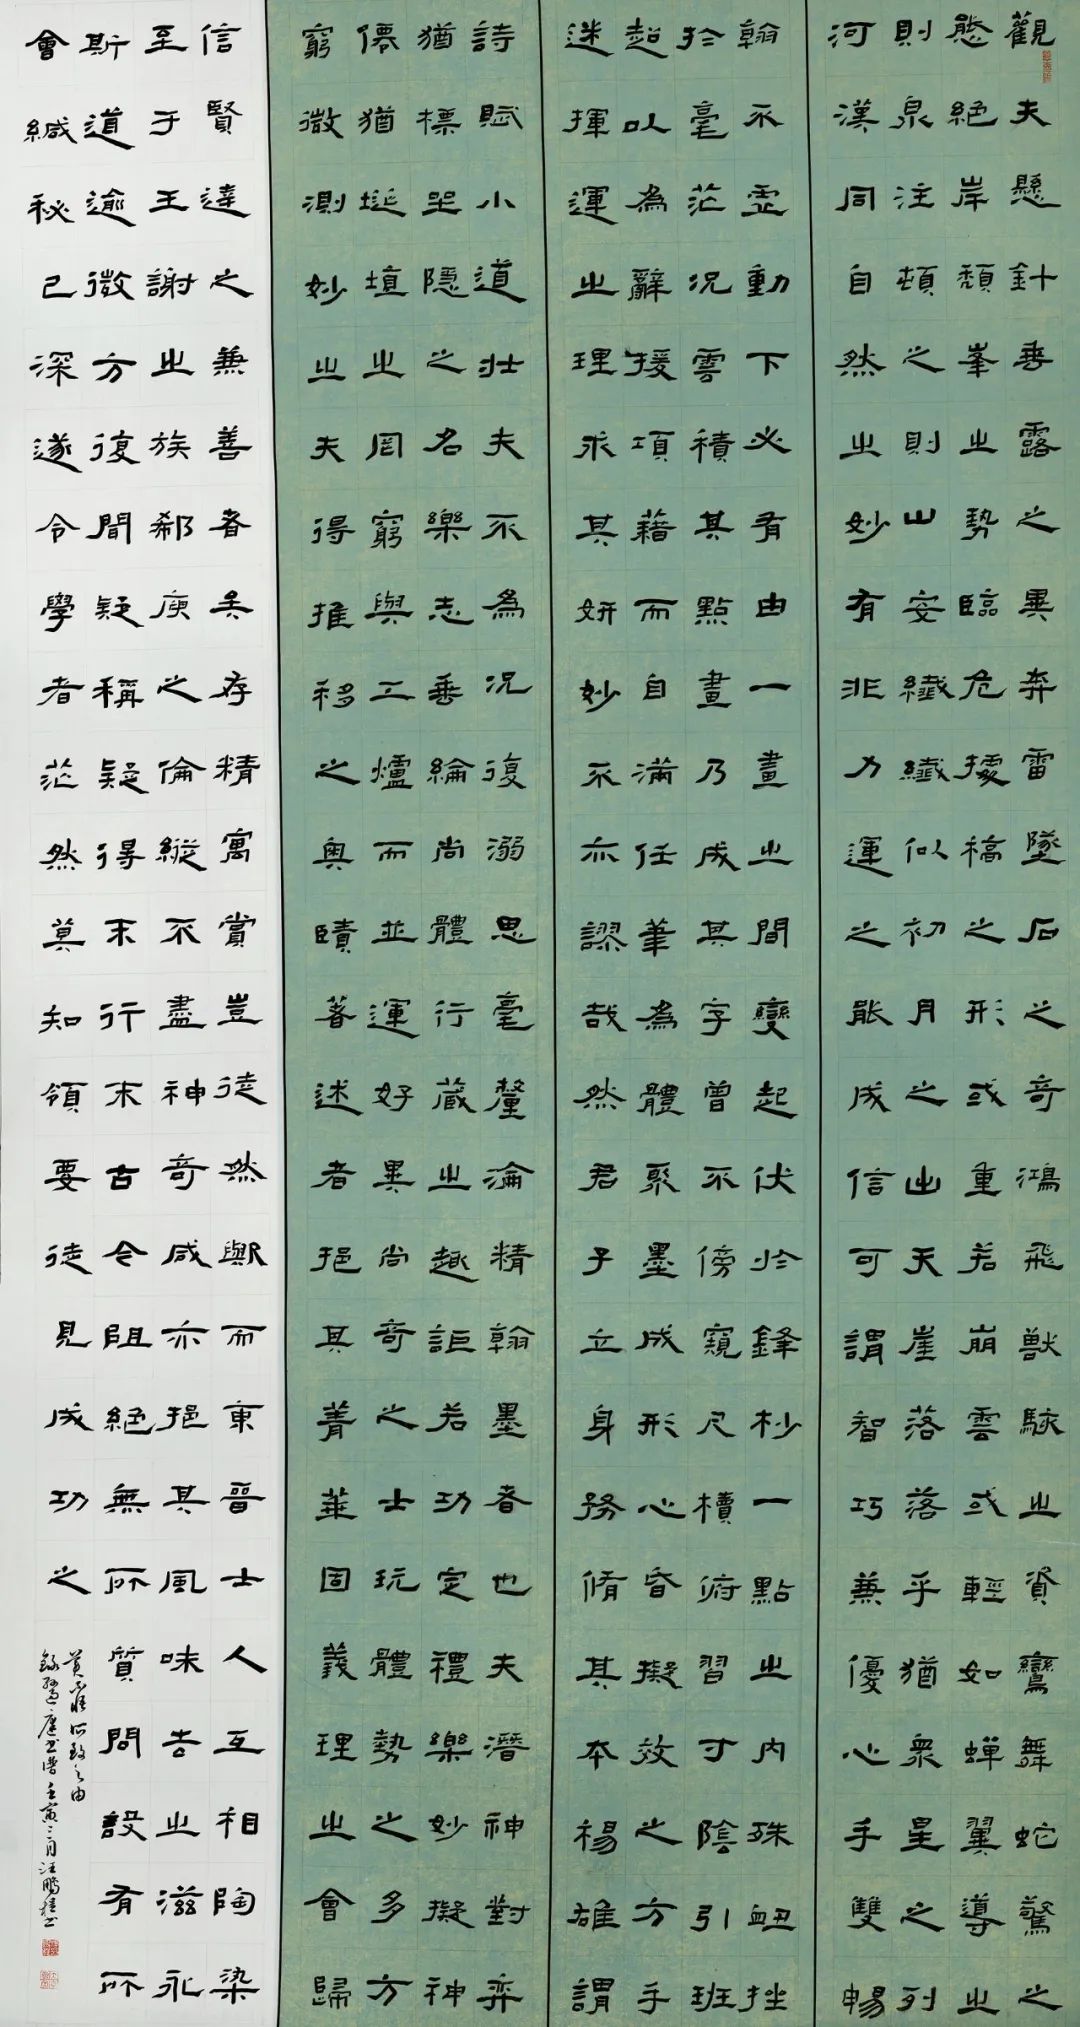 觀夫懸針垂露之異奔雷墜石之奇鴻飛獸駭之資鸞舞蛇驚之
態絕岸頹峯之勢臨危據槁之形或重若崩雲或輕如蟬翼導之
則泉注頓之則山安纖纖似初月之出天崖落落乎猶衆星之列
河漢同自然之妙有非力運之能成信可謂智巧兼優心手雙暢
翰不虛動下必有由一畫之間變起伏於鋒杪一點之內殊衄挫
於毫芒況雲積其點畫乃成其字曾不傍窺尺櫝俯習寸陰引班
超以為辭援項藉而自滿任筆為體聚墨成形心昏擬效之方手
迷揮運之理求其妍妙不亦謬哉然君子立身務脩其本楊雄謂
詩賦小道壯夫不為況復溺思毫釐淪精翰墨者也夫潛神對弈
猶標坐隱之名樂志垂綸尚體行藏之趣詎若功定禮樂妙擬神
僊猶埏埴之罔窮與工爐而並運好異尚奇之士玩體勢之多方
窮微測妙之夫得推移之奧賾著述者挹其菁華固義理之會歸
信賢達之兼善者矣存精寓賞豈徒然與而東晉士人互相陶染
至于王謝之族郗庾之倫縱不盡神奇咸亦挹其風味去之滋永
斯道逾微方復聞疑稱疑得末行末古今阻絕無所質問設有所
會緘秘已深遂令學者茫然莫知領要徒見成功之
美不悟所致之由
錄孫過庭書譜壬寅二月汪鵬書